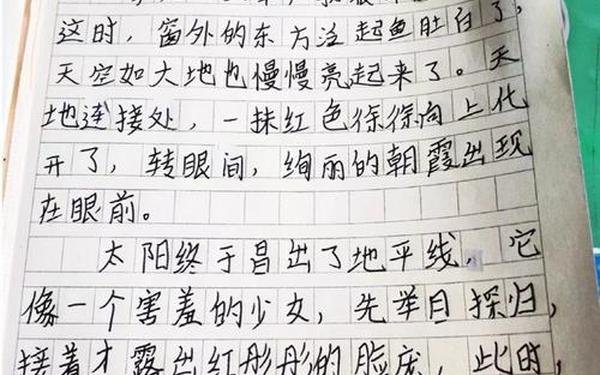 这时，窗外的东方泛起鱼肚白了，
天空如大地也慢慢亮起来了。天
地连接处，一抹红色徐徐向上化
开了，转眼间，绚丽的朝霞出现
在眼前。
太阳终于冒出了地平线，它
像一个害羞的少女，先举目探归，
接着才露出红彤彤的脸庞，此时，